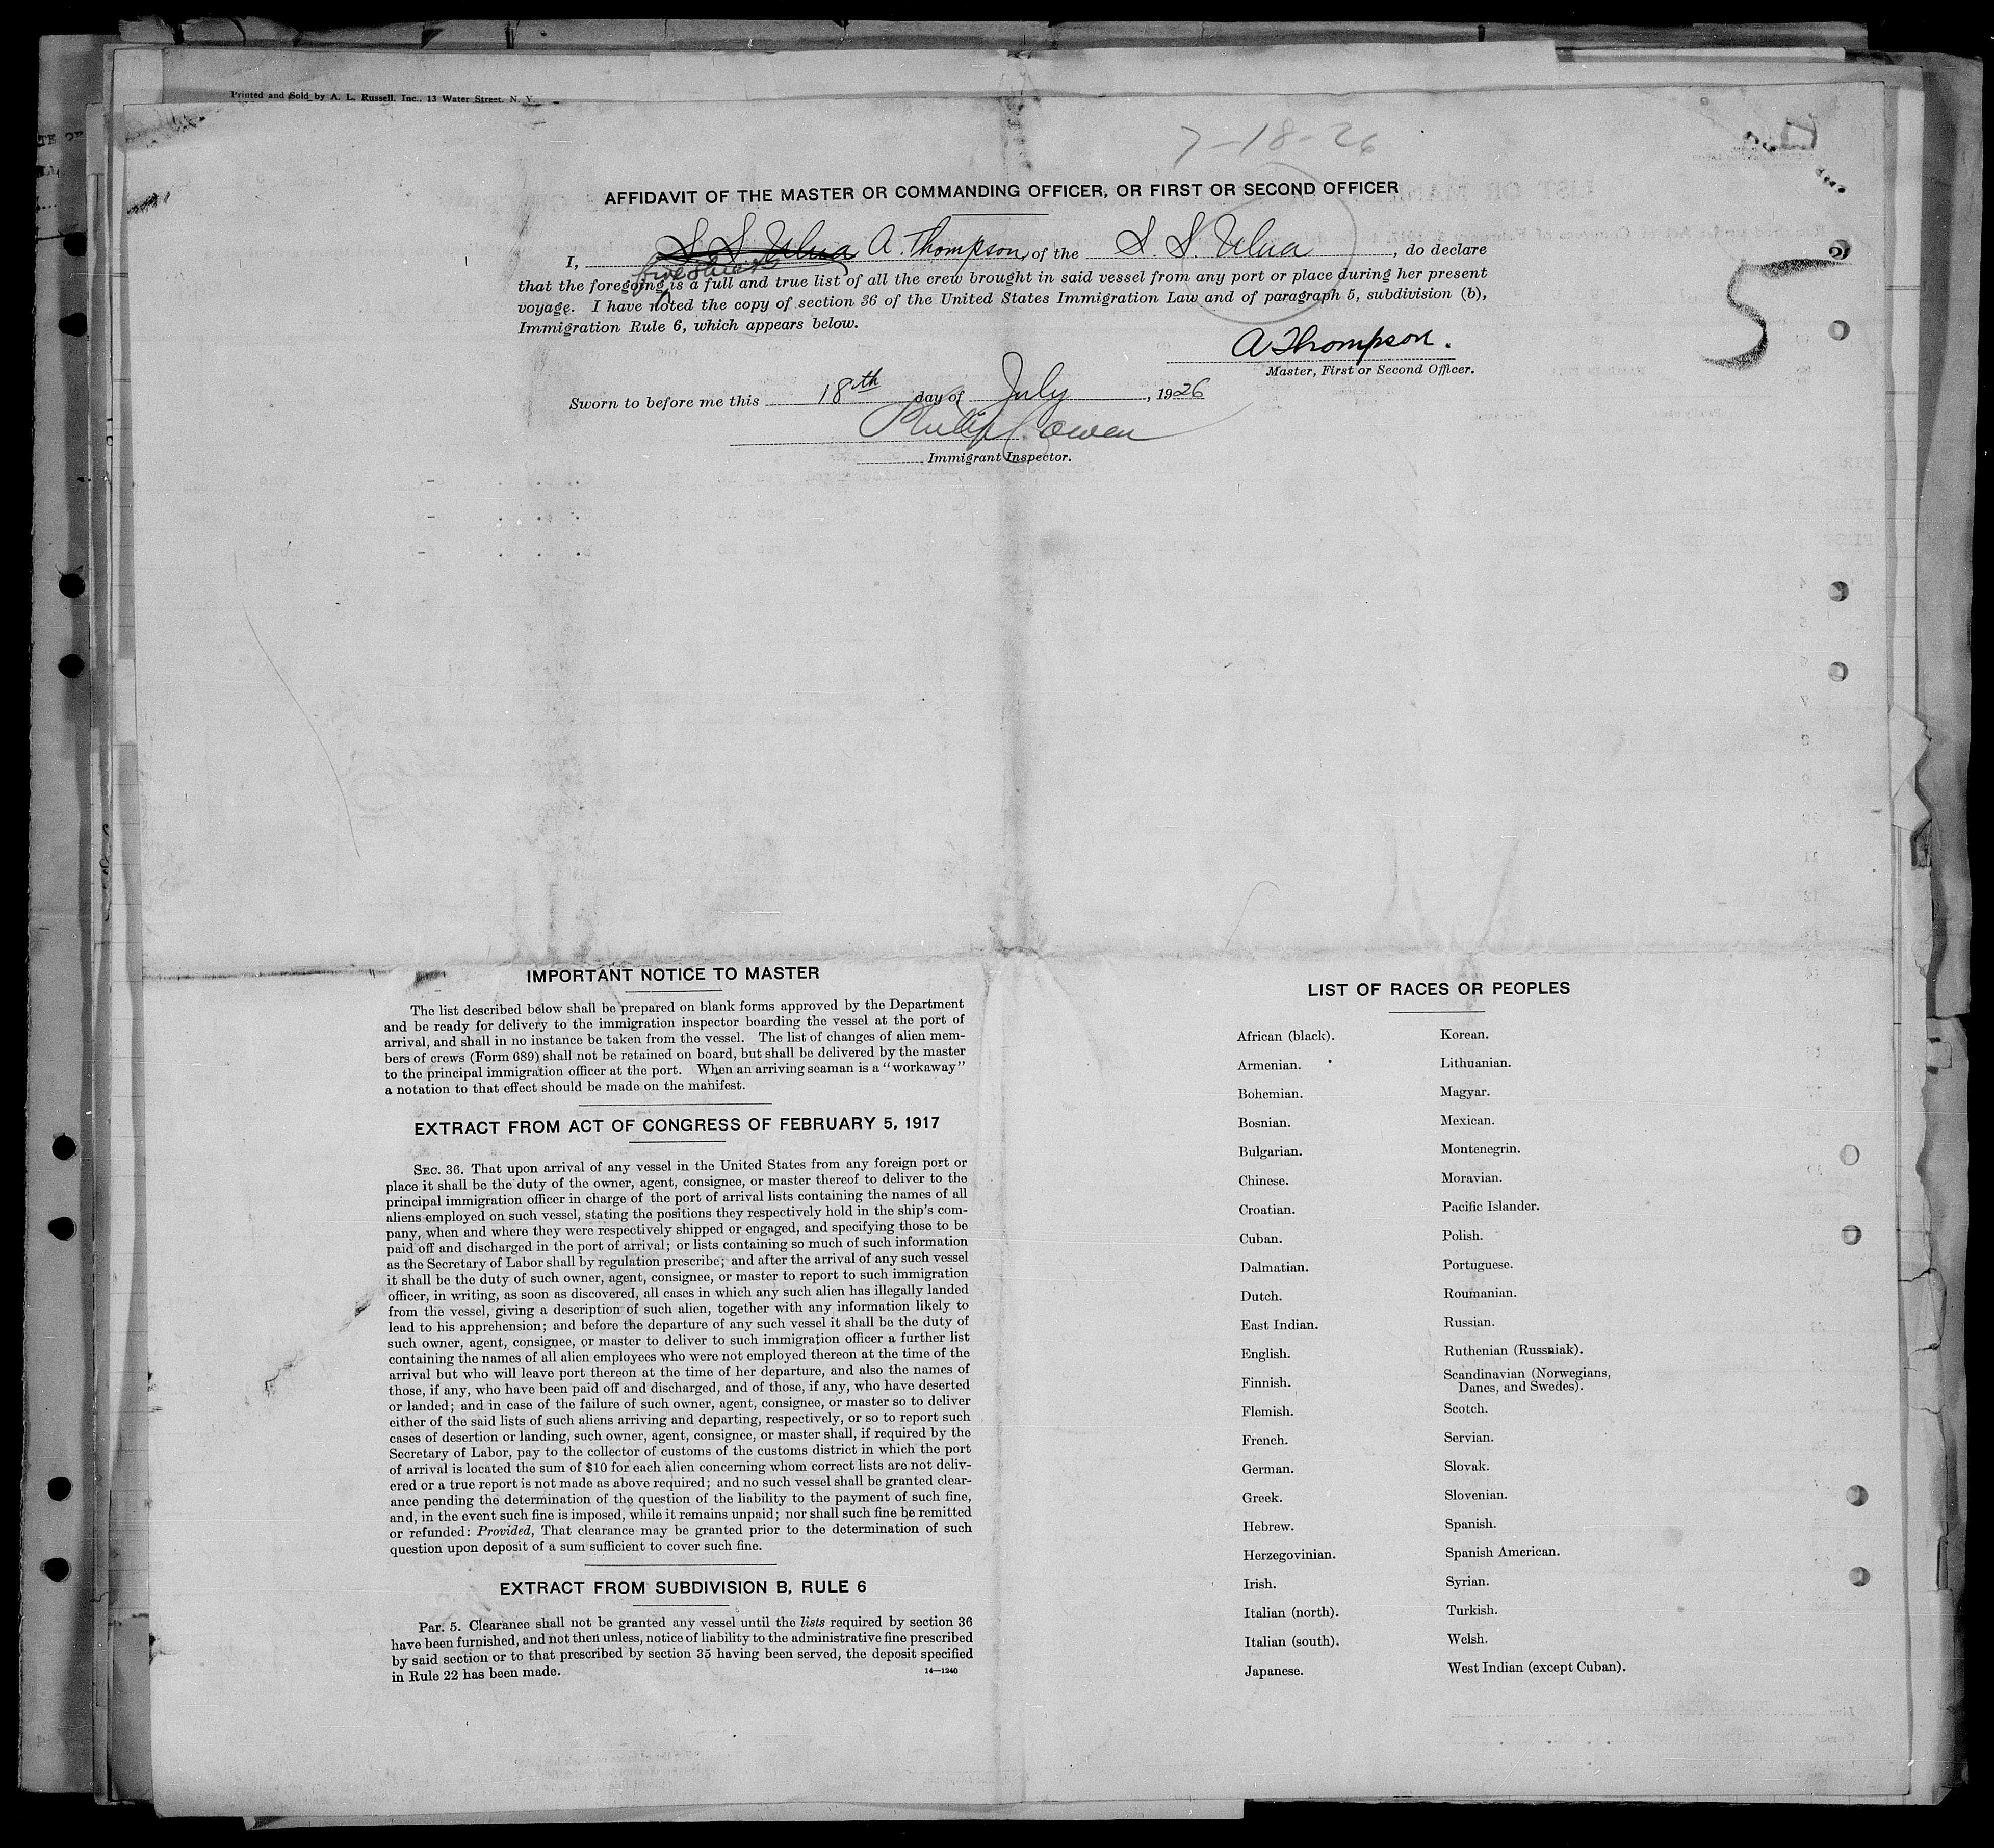 Printed and Sold by A. L. Russell, Inc., 13 Water Street, N. Y.
7-18-26
AFFIDAVIT OF THE MASTER OR COMMANDING OFFICER, OR FIRST OR SECOND OFFICER
I, S. S. Ulua A. Thompson, of the S. S. Ulua, do declare
five sheets
that the foregoing is a full and true list of all the crew brought in said vessel from any port or place during her present
voyage. I have noted the copy of section 36 of the United States Immigration Law and of paragraph 5, subdivision (b),
Immigration Rule 6, which appears below.
5
A Thompson.
Master, First or Second Officer.
Sworn to before me this 18th day of July, 1926
Philip Cowen
Immigrant Inspector.
IMPORTANT NOTICE TO MASTER
The list described below shall be prepared on blank forms approved by the Department
and be ready for delivery to the immigration inspector boarding the vessel at the port of
arrival, and shall in no instance be taken from the vessel. The list of changes of alien mem-
bers of crews (Form 689) shall not be retained on board, but shall be delivered by the master
to the principal immigration officer at the port. When an arriving seaman is a "workaway"
a notation to that effect should be made on the manifest.
EXTRACT FROM ACT OF CONGRESS OF FEBRUARY 5, 1917
SEC. 36. That upon arrival of any vessel in the United States from any foreign port or
place it shall be the duty of the owner, agent, consignee, or master thereof to deliver to the
principal immigration officer in charge of the port of arrival lists containing the names of all
aliens employed on such vessel, stating the positions they respectively hold in the ship's com-
pany, when and where they were respectively shipped or engaged, and specifying those to be
paid off and discharged in the port of arrival; or lists containing so much of such information
as the Secretary of Labor shall by regulation prescribe; and after the arrival of any such vessel
it shall be the duty of such owner, agent, consignee, or master to report to such immigration
officer, in writing, as soon as discovered, all cases in which any such alien has illegally landed
from the vessel, giving a description of such alien, together with any information likely to
lead to his apprehension; and before the departure of any such vessel it shall be the duty of
such owner, agent, consignee, or master to deliver to such immigration officer a further list
containing the names of all alien employees who were not employed thereon at the time of the
arrival but who will leave port thereon at the time of her departure, and also the names of
those, if any, who have been paid off and discharged, and of those, if any, who have deserted
or landed; and in case of the failure of such owner, agent, consignee, or master so to deliver
either of the said lists of such aliens arriving and departing, respectively, or so to report such
cases of desertion or landing, such owner, agent, consignee, or master shall, if required by the
Secretary of Labor, pay to the collector of customs of the customs district in which the port
of arrival is located the sum of $10 for each alien concerning whom correct lists are not deliv-
ered or a true report is not made as above required; and no such vessel shall be granted clear-
ance pending the determination of the question of the liability to the payment of such fine,
and, in the event such fine is imposed, while it remains unpaid; nor shall such fine be remitted
or refunded: Provided, That clearance may be granted prior to the determination of such
question upon deposit of a sum sufficient to cover such fine.
EXTRACT FROM SUBDIVISION B, RULE 6
Par. 5. Clearance shall not be granted any vessel until the lists required by section 36
have been furnished, and not then unless, notice of liability to the administrative fine prescribed
by said section or to that prescribed by section 35 having been served, the deposit specified
in Rule 22 has been made.
14—1240
LIST OF RACES OR PEOPLES
African (black).
Armenian.
Bohemian.
Bosnian.
Bulgarian.
Chinese.
Croatian.
Cuban.
Dalmatian.
Dutch.
East Indian.
English.
Finnish.
Flemish.
French.
German.
Greek.
Hebrew.
Herzegovinian.
Irish.
Italian (north).
Italian (south).
Japanese.
Korean.
Lithuanian.
Magyar.
Mexican.
Montenegrin.
Moravian.
Pacific Islander.
Polish.
Portuguese.
Roumanian.
Russian.
Ruthenian (Russniak).
Scandinavian (Norwegians,
Danes, and Swedes).
Scotch.
Servian.
Slovak.
Slovenian.
Spanish.
Spanish American.
Syrian.
Turkish.
Welsh.
West Indian (except Cuban).